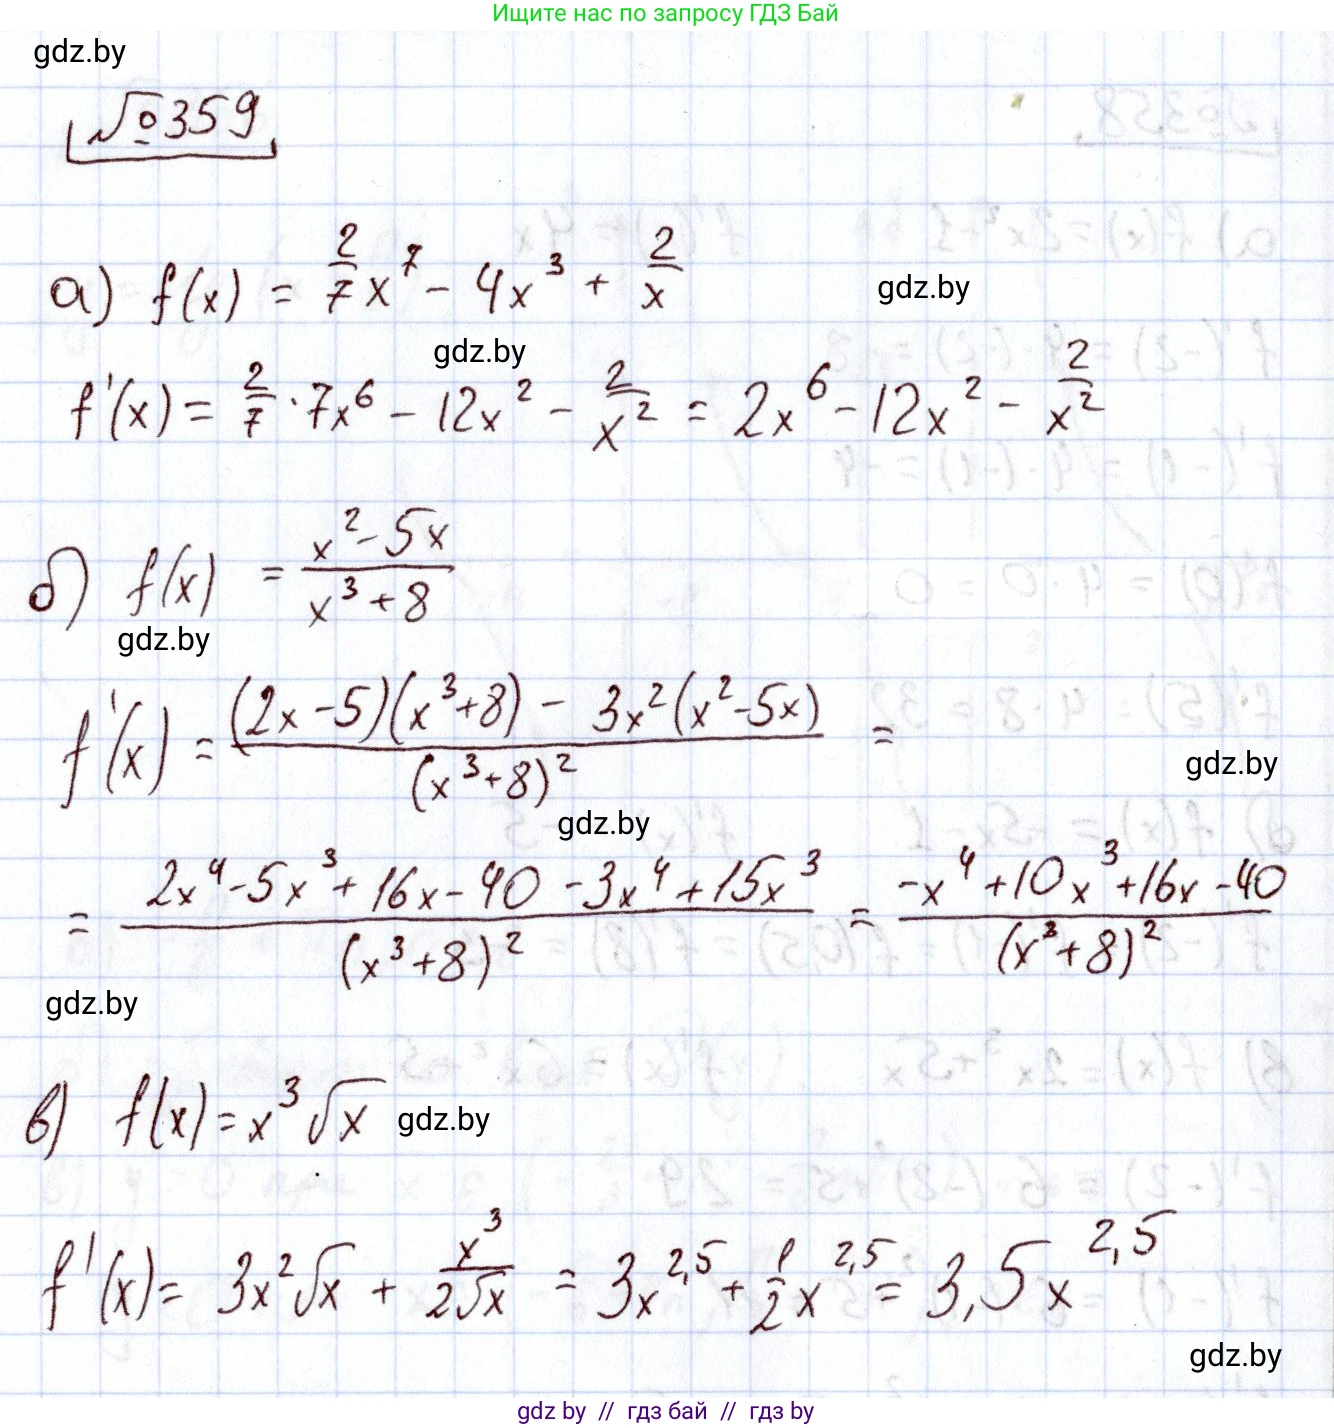 Ищите нас по запросу ГДЗ Бай
gdz.by
№359
а) f(x) = 2/7 x⁷ - 4x³ + 2/x
gdz.by
gdz.by
f'(x) = 2/7 · 7x⁶ - 12x² - 2/x² = 2x⁶ - 12x² - 2/x²
б) f(x) = (x² - 5x)/(x³ + 8)
gdz.by
f'(x) = ((2x - 5)(x³ + 8) - 3x²(x² - 5x))/(x³ + 8)² =
gdz.by
gdz.by
= (2x⁴ - 5x³ + 16x - 40 - 3x⁴ + 15x³)/(x³ + 8)² = (-x⁴ + 10x³ + 16x - 40)/(x³ + 8)²
gdz.by
в) f(x) = x³√x
gdz.by
f'(x) = 3x²√x + x³/(2√x) = 3x^2,5 + 1/2 x^2,5 = 3,5x^2,5
gdz.by
gdz by // гдз бай // гдз by